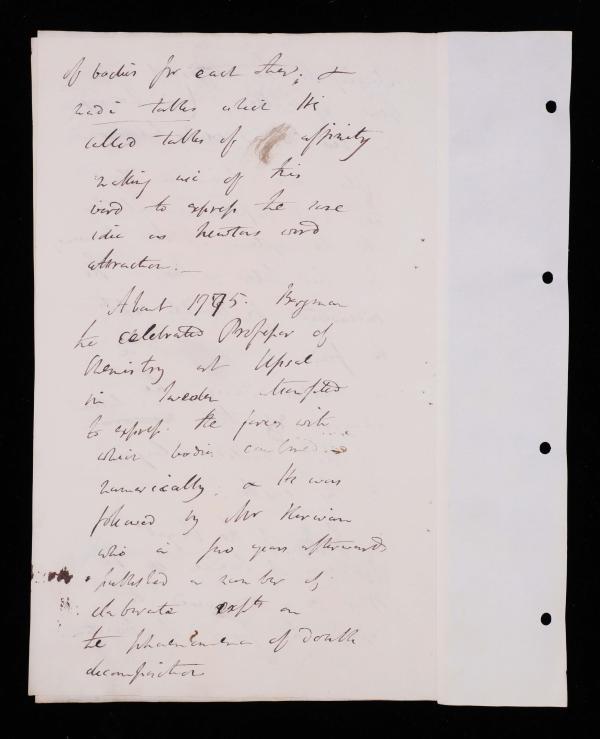 of bodies for each other; &
made tables which He
called tables of affinity
making use of this
word to express the same
idea as Newtons word
attraction. —
About 1775. Bergman
the celebrated Professor of
Chemistry at Upsal
in Sweden attempted
to express the forces with
which bodies combined
numerically. & He was
followed by Mr Kirwan
who a few years afterwards
published a number of
elaborate expts on
the phaenomena of double
decomposition